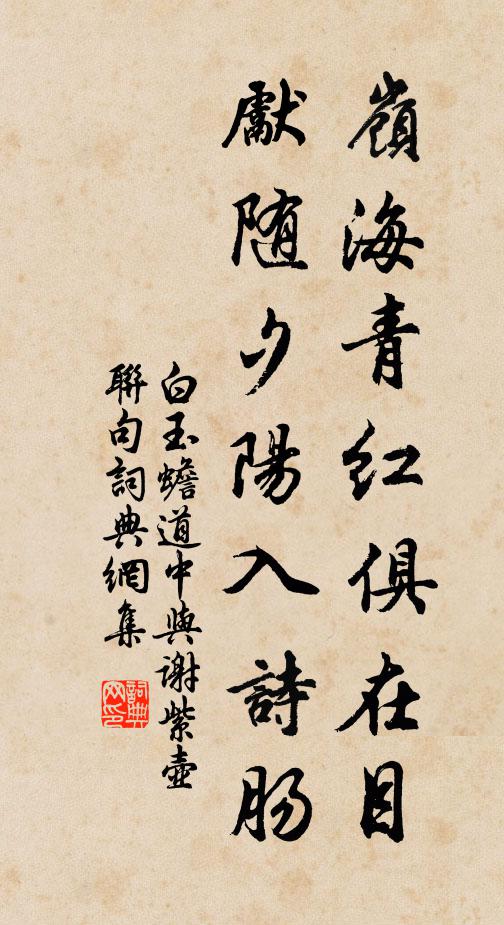 嶺海青红俱在目
獻随夕陽入詩肠
白玉蟾道中與谢紫壺
聯句詞典網集
詞典网印